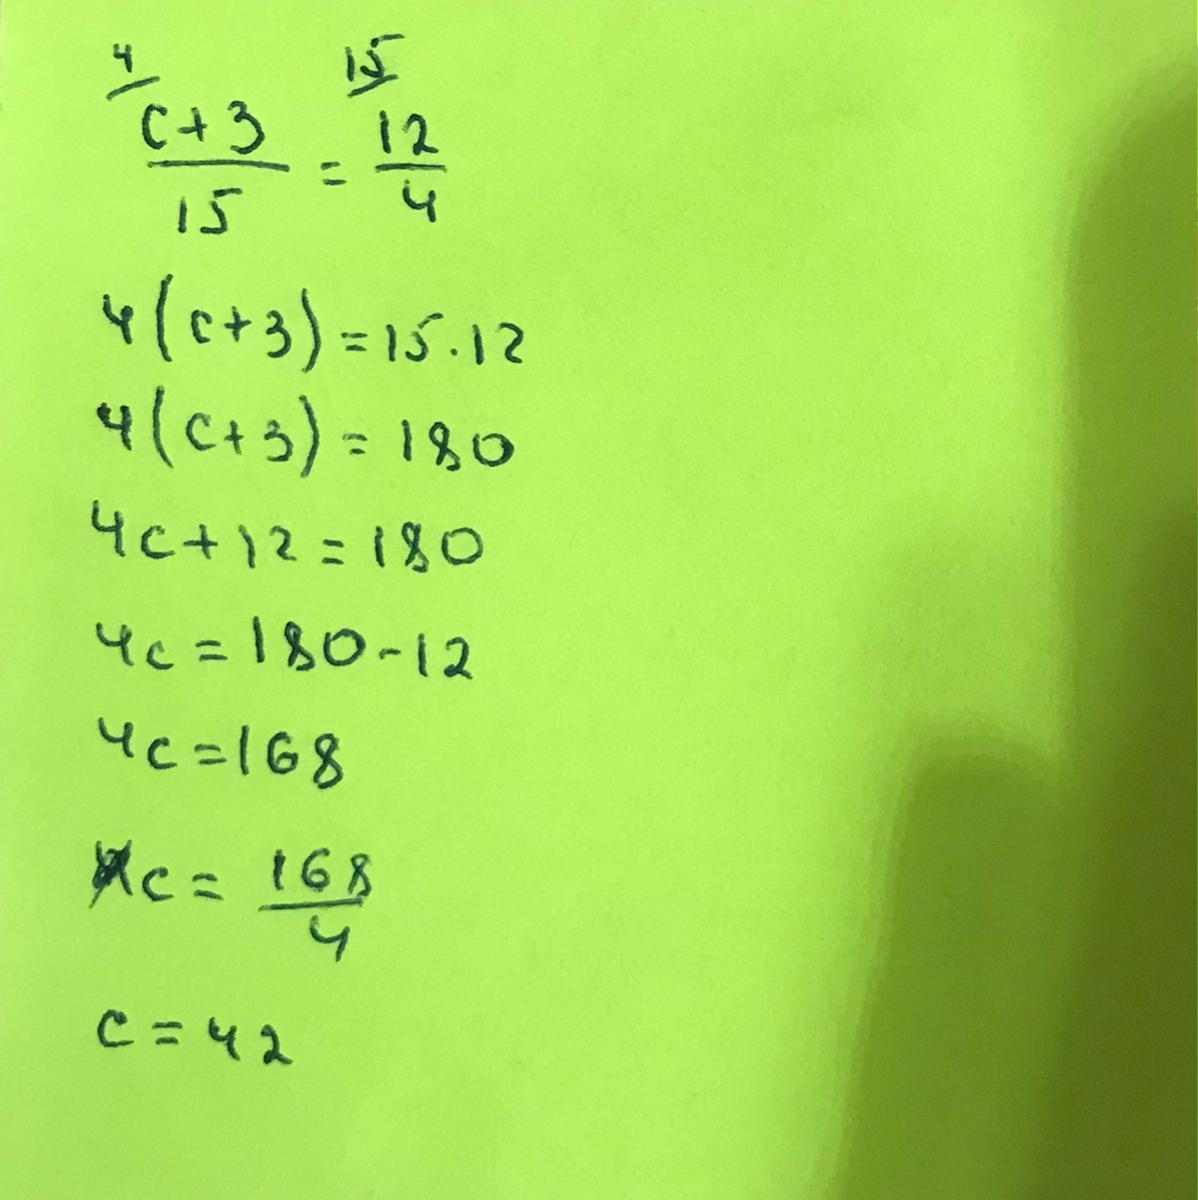 4/ 15/
c+3/15 = 12/4
4(c+3)=15·12
4(c+3)=180
4c+12=180
4c=180-12
4c=168
c=168/4
c=42